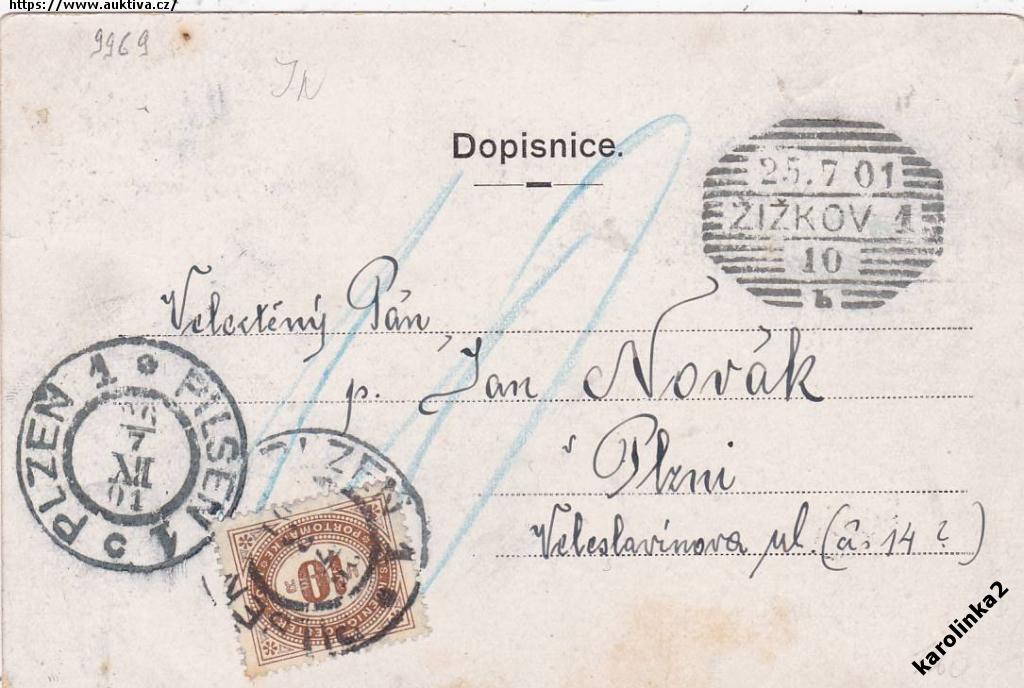 https://www.auktiva.cz/
9969
Dopisnice.
25.7 01
ŽIŽKOV 1
10
b
Velectěný Pán
p. Jan Novák
v Plzni
Veleslavínova ul. (č. 14 ?)
PLZEN 1 * PILSEN 1 *
26
7
XII
01
PLZEN 1 * PILSEN
10
karolinka2